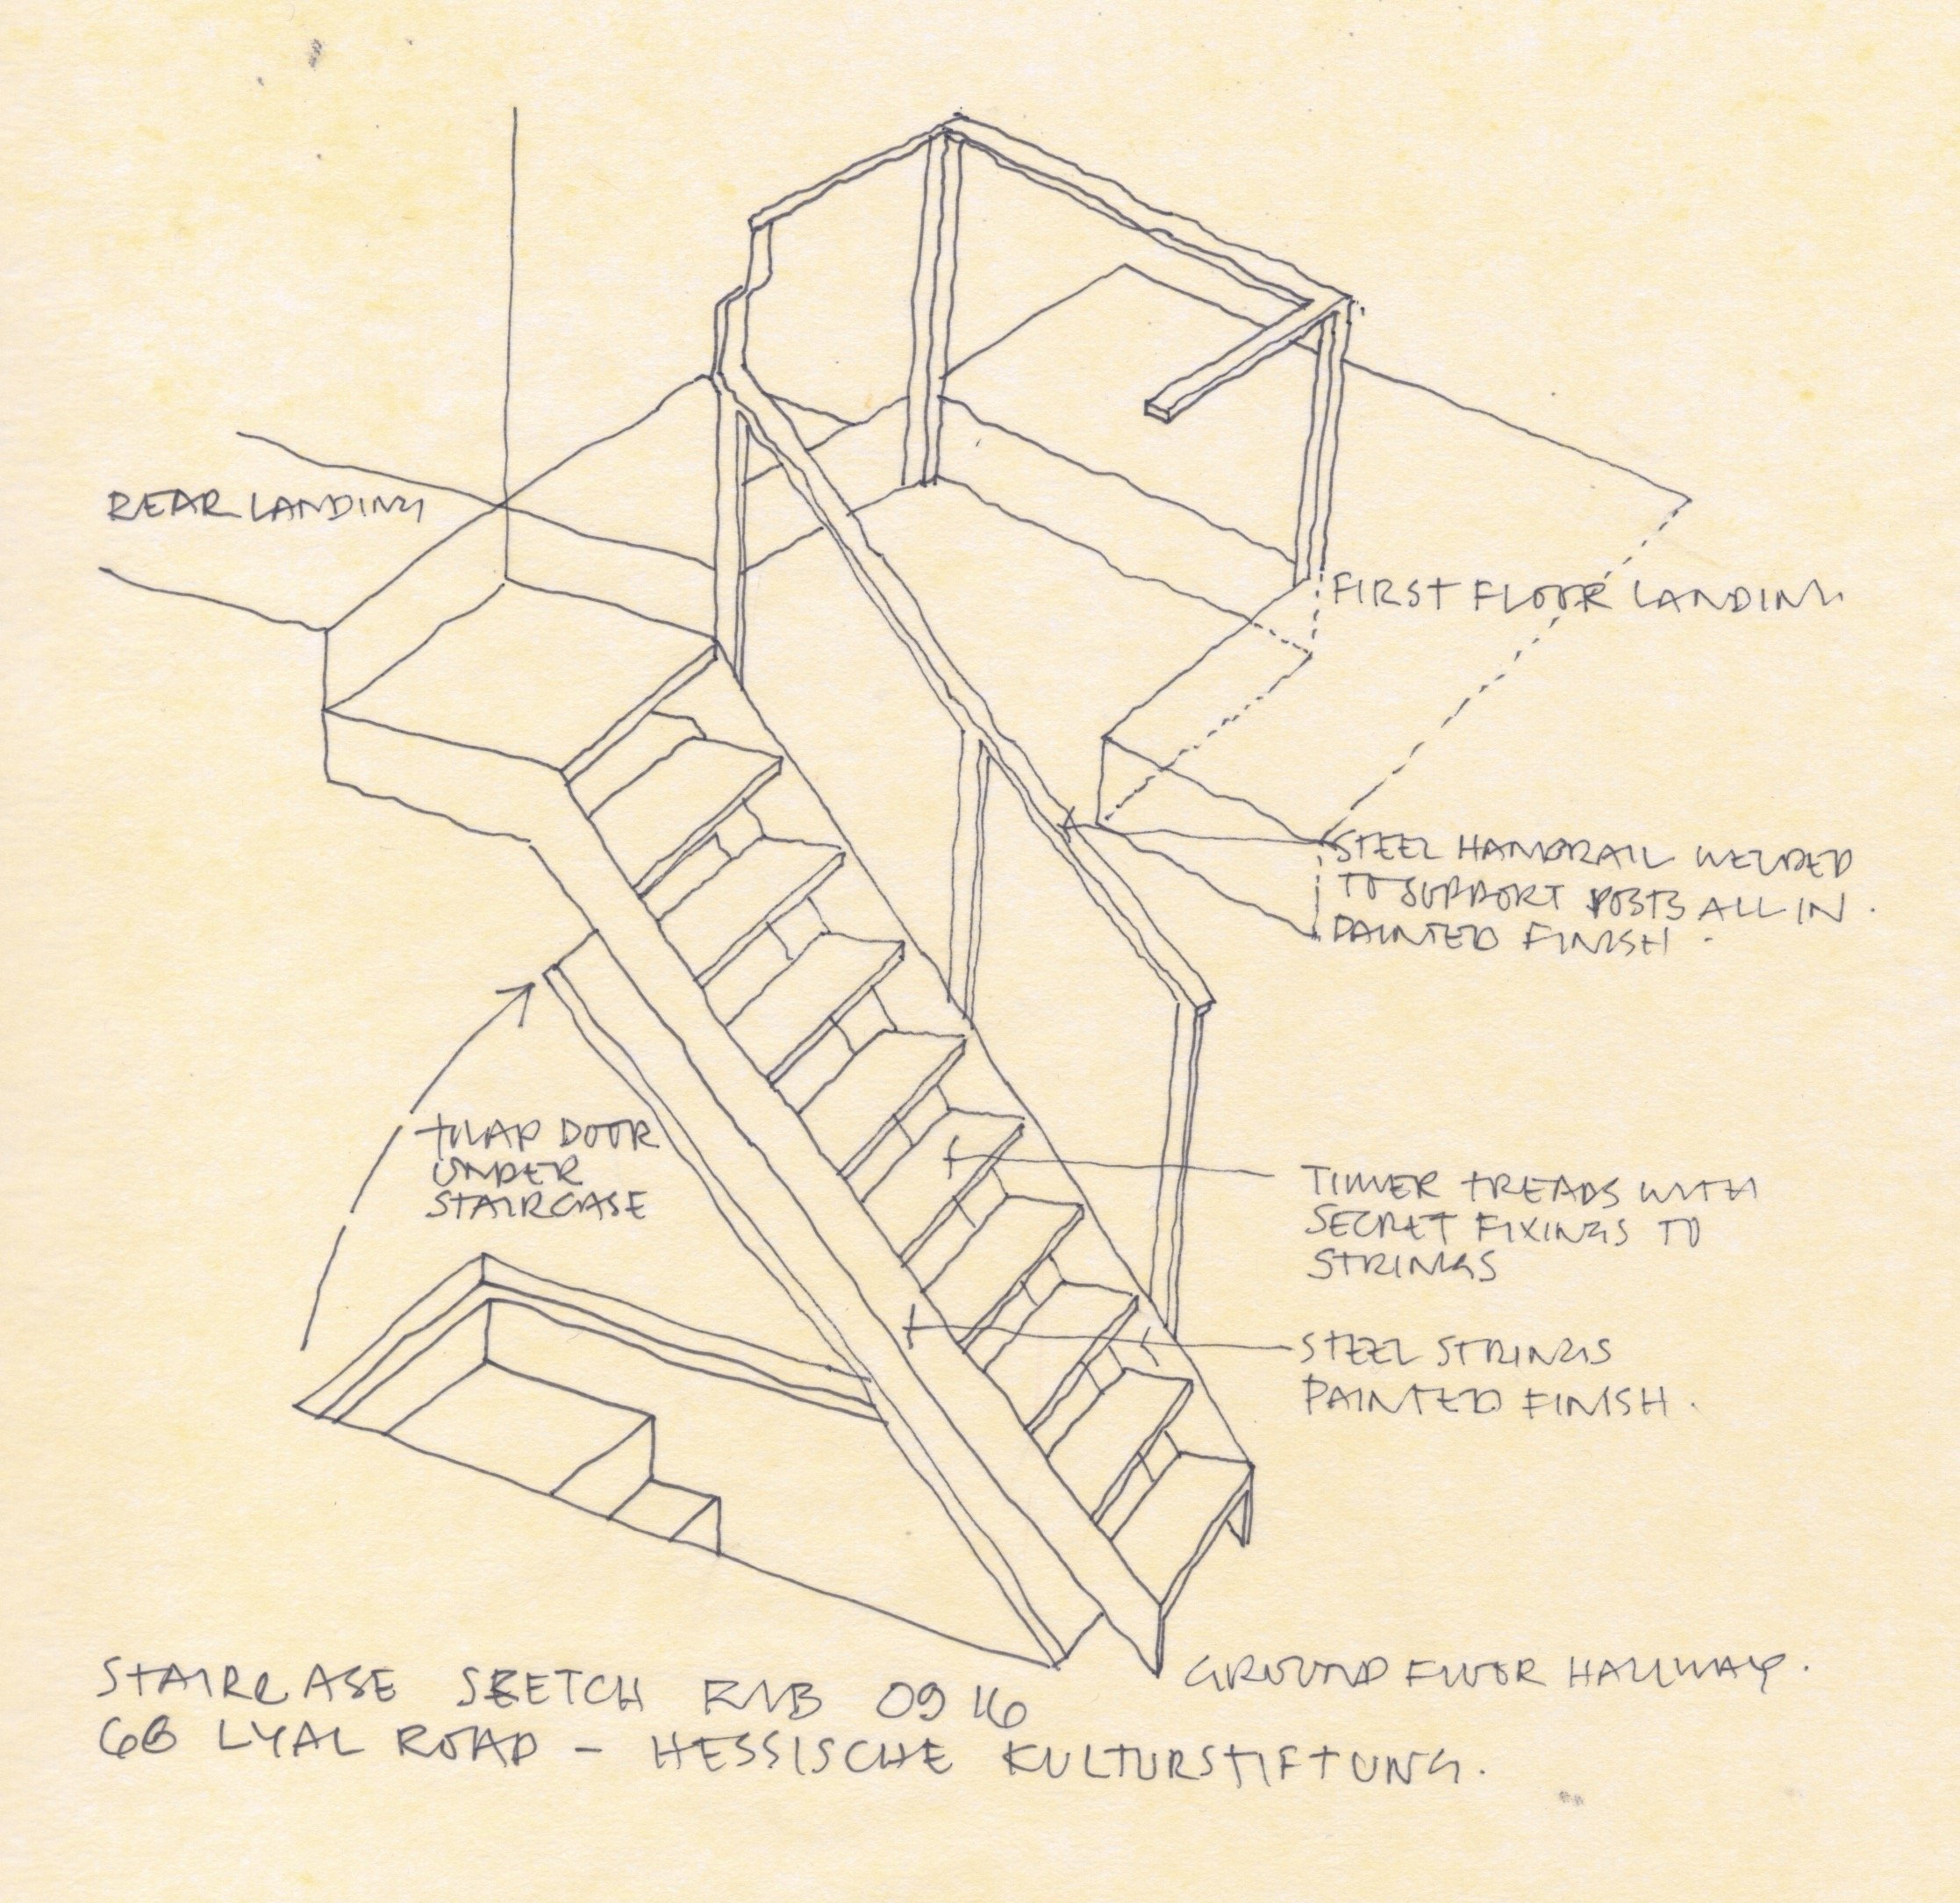 REAR LANDING
FIRST FLOOR LANDING
STEEL HANDRAIL WELDED
TO SUPPORT POSTS ALL IN.
PAINTED FINISH.
TRAP DOOR
UNDER
STAIRCASE
TIMBER TREADS WITH
SECRET FIXINGS TO
STRINGS
STEEL STRINGS
PAINTED FINISH.
GROUND FLOOR HALLWAY.
STAIRCASE SKETCH 09 16
LYAL ROAD - HESSISCHE KULTURSTIFTUNG.